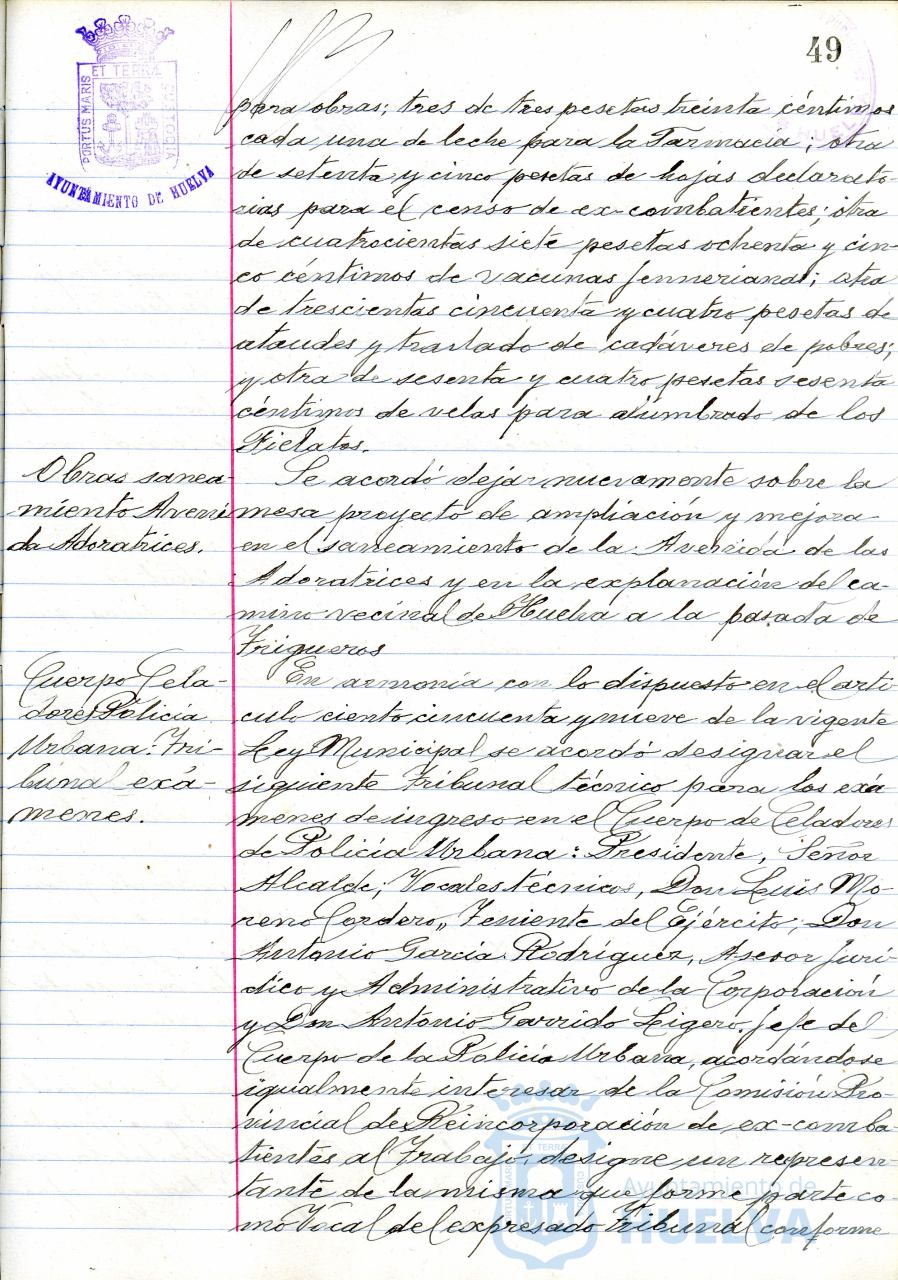 49
PORTUS MARIS
ET TERRÆ
CUSTODIA
AYUNTAMIENTO DE HUELVA
para obras; tres de tres pesetas treinta céntimos
cada una de leche para la Farmacia; otra
de setenta y cinco pesetas de hojas declarato-
rias para el censo de ex-combatientes; otra
de cuatrocientas siete pesetas ochenta y cin-
co céntimos de vacunas jenneriana; otra
de trescientas cincuenta y cuatro pesetas de
ataudes y traslado de cadáveres de pobres;
y otra de sesenta y cuatro pesetas sesenta
céntimos de velas para alumbrado de los
Fielatos.
Obras sanea-
miento Aveni
da Adoratrices.
Se acordó dejar nuevamente sobre la
mesa proyecto de ampliación y mejora
en el saneamiento de la Avenida de las
Adoratrices y en la explanación del ca-
mino vecinal de Huelva a la pasada de
Trigueros
Cuerpo Cela-
dores Policía
Urbana. Tri-
bunal exá-
menes.
En armonía con lo dispuesto en el artí
culo ciento cincuenta y nueve de la vigente
Ley Municipal se acordó designar el
siguiente Tribunal técnico para los exá
menes de ingreso en el Cuerpo de Celadores
de Policía Urbana: Presidente, Señor
Alcalde; Vocales técnicos, Don Luis Mo-
reno Cordero, Teniente del Ejército; Don
Antonio García Rodríguez, Asesor Jurí-
dico y Administrativo de la Corporación
y Don Antonio Garrido Ligero, Jefe del
Cuerpo de la Policía Urbana, acordándose
igualmente interesar de la Comisión Pro-
vincial de Reincorporación de ex-comba-
tientes al Trabajo, designe un represen-
tante de la misma que forme parte co-
mo Vocal del expresado Tribunal conforme
Ayuntamiento de
HUELVA